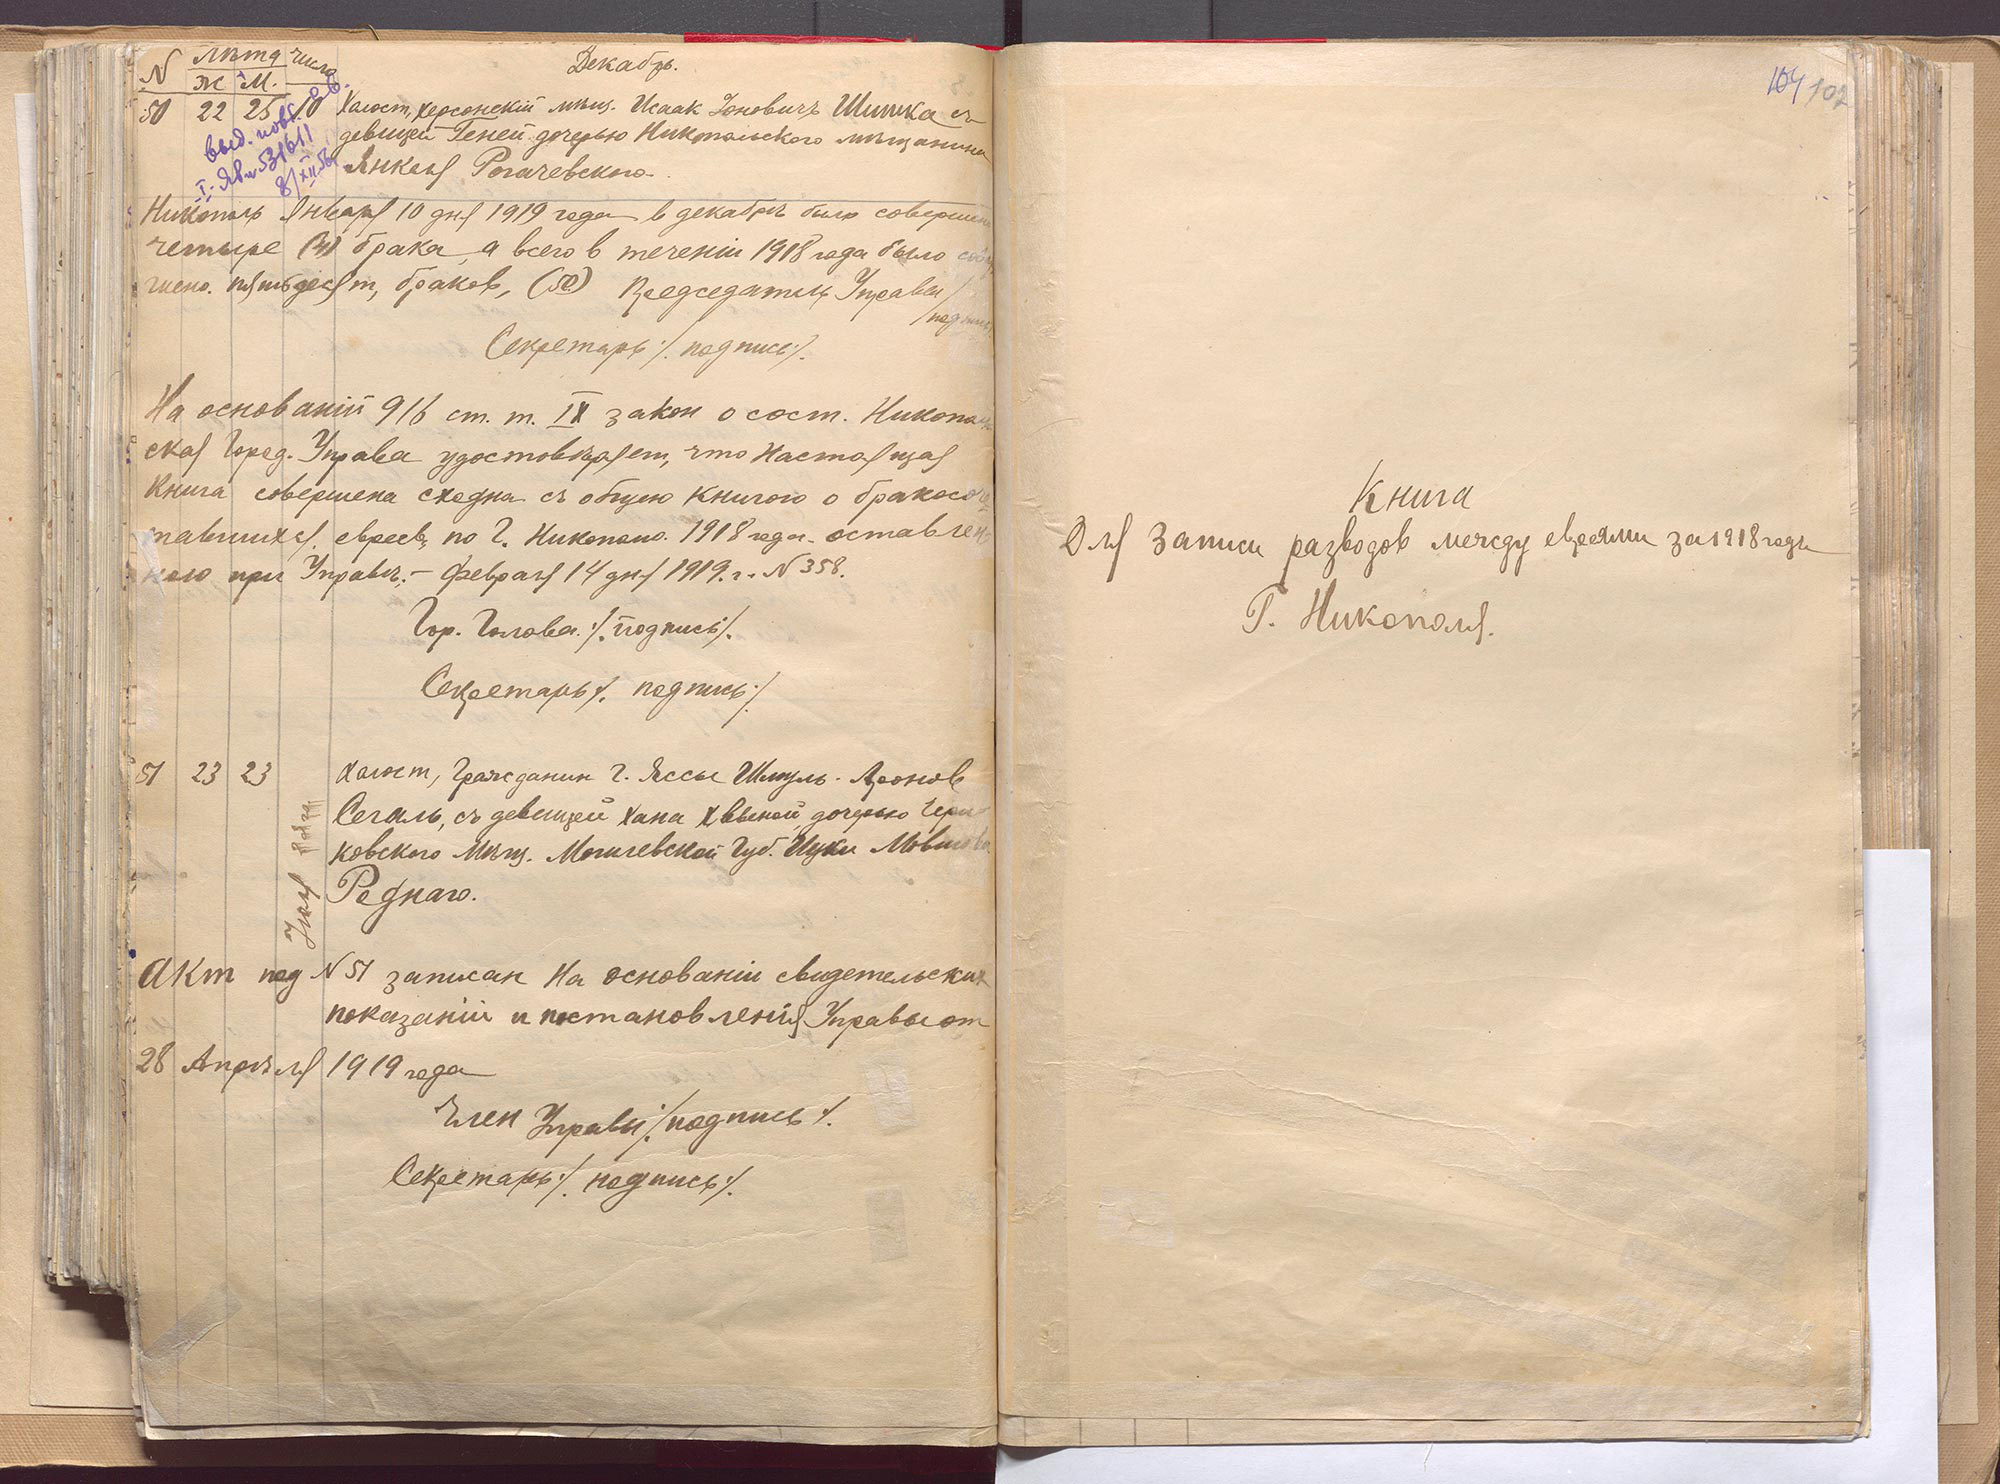 N Лѣта число Декабрь.
ж М.
50 22 25 10 Холост, херсонскій мѣщ. Исаак Іоновичъ Шишка съ
девицей Геней дочерью Никопольского мѣщанина
Янкеля Рогачевского.
выд. повт. св.
I-ЯВ № 531611
8/XII 56
Никополь Января 10 дня 1919 года в декабрѣ было совершено
четыре (4) брака, а всего в теченіи 1918 года было совер
шено. пятьдесят, браков, (50) Председатель Управы /
/подпись/
Секретарь /. подпись /.
На основаній 916 ст. т. IX закон о сост. Никополь
ская Город. Управа удостовѣряет, что Настоящая
Книга совершена сходна съ общею книгою о бракосоче
тавшихся евреев, по Г. Никополю. 1918 года. оставлен-
ного при Управѣ. - Февраля 14 дня 1919. г. N 358.
Гор. Голова :/. подпись /.
Секретарь /. подпись /.
51 23 23 Холост, Гражданин Г. Яссы Шмуль - Аронов
Сегаль, съ девицей Хана дочерью
ковского Мѣщ. Могилевской Губ. Ицки
Реднаго.
Іюля
Акт под N 51 записан На основаніи свидетельских
показаній и постановленія Управы от
28 Апрѣля 1919 года
Член Управы /. подпись /.
Секретарь /. подпись /.
104 102
Книга
Для Записи разводов между евреями за 1918 годъ
Г. Никополя.